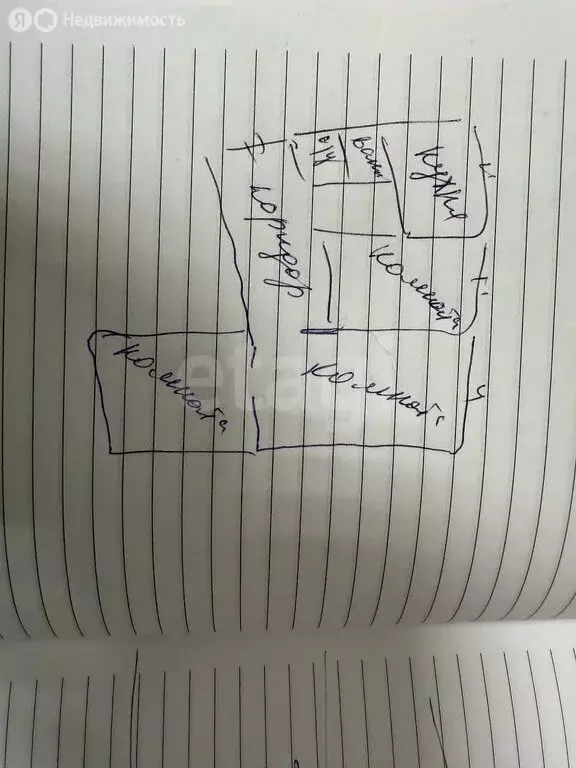 Я Недвижимость
с/у
ванн
кухня
коридор
комната
комната
комната
etagi